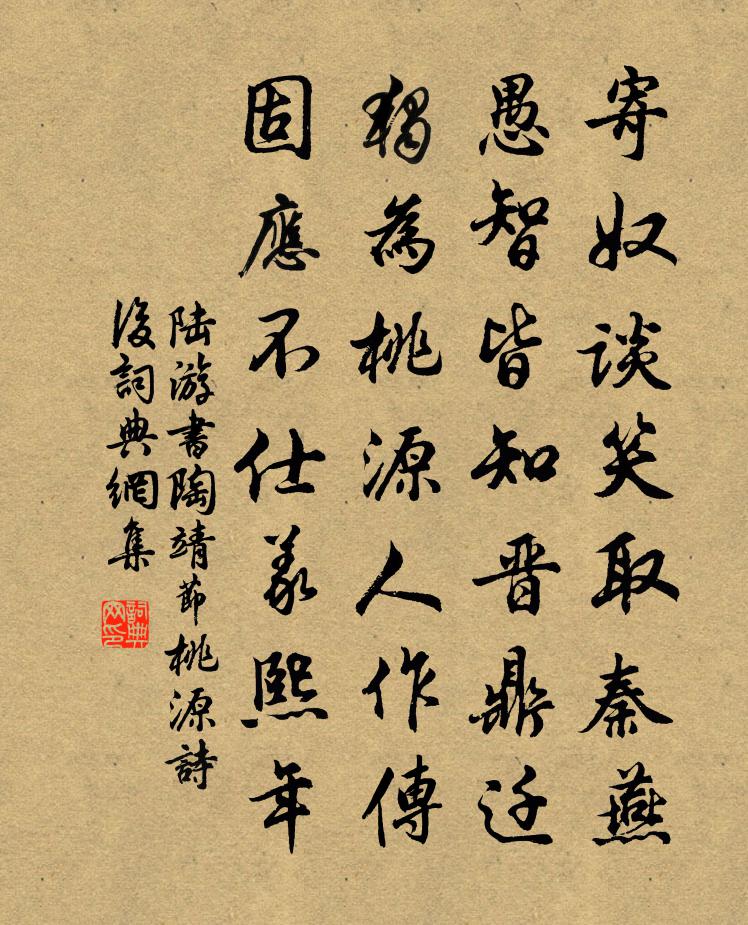 寄奴談笑取秦燕
愚智皆知晋鼎迁
独為桃源人作傳
固應不仕義熙年
陸游書陶靖節桃源詩
後詞典網集
詞典网印